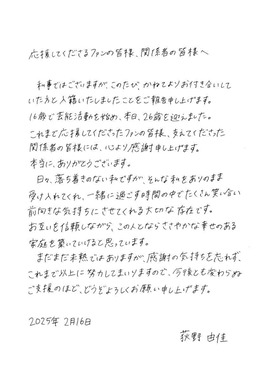 応援してくださるファンの皆様、関係者の皆様へ
私事ではございますが、このたび、かねてよりお付き合いしてい
た方と入籍いたしましたことをご報告申し上げます。
16歳で芸能活動を始め、本日、26歳を迎えました。
これまで応援してくださったファンの皆様、支えてくださった
関係者の皆様には、心より感謝申し上げます。
本当に、ありがとうございます。
日々、落ち着きのない私ですが、そんな私をありのまま
受け入れてくれ、一緒に過ごす時間の中でたくさん笑い合い
前向きな気持ちにさせてくれる大切な存在です。
お互いを信頼しながら、この人とならささやかな幸せのある
家庭を築いていけると思っています。
まだまだ未熟ではありますが、感謝の気持ちを忘れず、
これまで以上に努力してまいりますので、今後とも変わらぬ
ご支援のほど、どうぞよろしくお願い申し上げます。
2025年2月16日
荻野 由佳